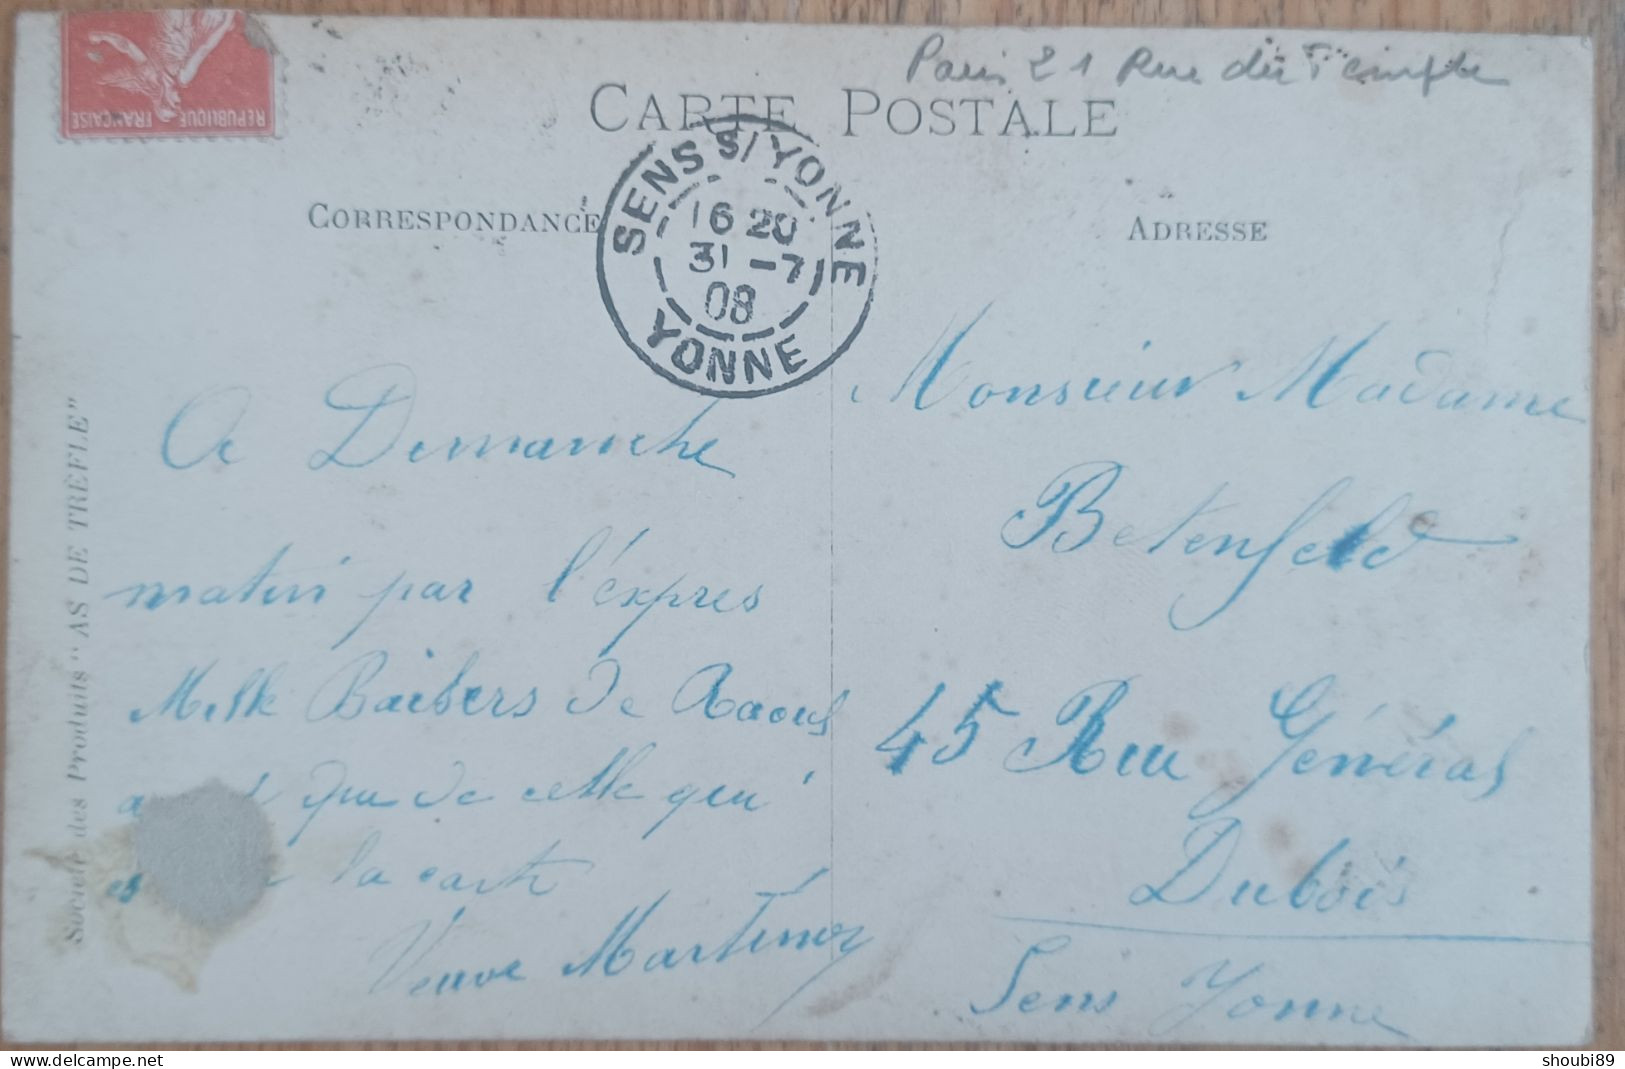 Paris 21 Rue du Temple
CARTE POSTALE
REPUBLIQUE
FRANÇAISE
SENS S/YONNE
16 20
31 -7
08
YONNE
CORRESPONDANCE
ADRESSE
A Dimanche
matin par l'éxpres
Mille Baisers de Raoul
que de celle qui
la carte
Veuve Martinez
Monsieur Madame
Betenfeld
45 Rue Général
Dubois
Sens Yonne
Société des Produits "AS DE TRÈFLE"
shoubi89